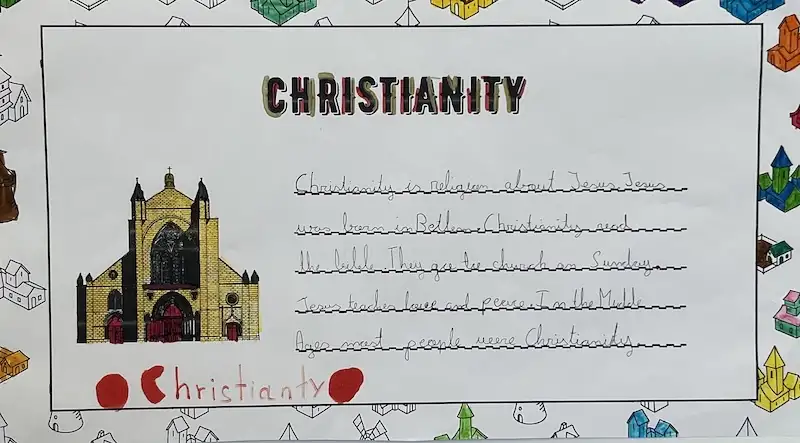 CHRISTIANITY
Christianity is religion about Jesus. Jesus
was born in Bethem. Christianity read
the bible. They go too church on Sunday.
Jesus teaches love and peace. In the Middle
Ages most people were Christianity
Christianty